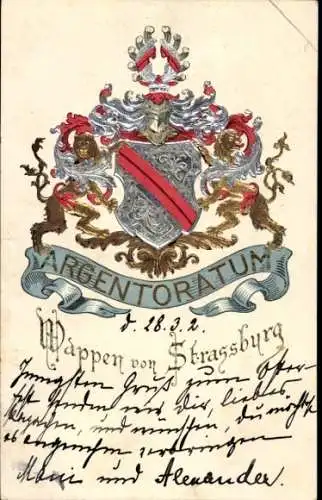 ARGENTORATUM
d. 28.3.2.
Wappen von Strassburg
Innigsten Gruß zum Oster-
fest senden wir Dir, liebes
und wünschen, du möchtest
es angenehm verbringen
und Alexander.